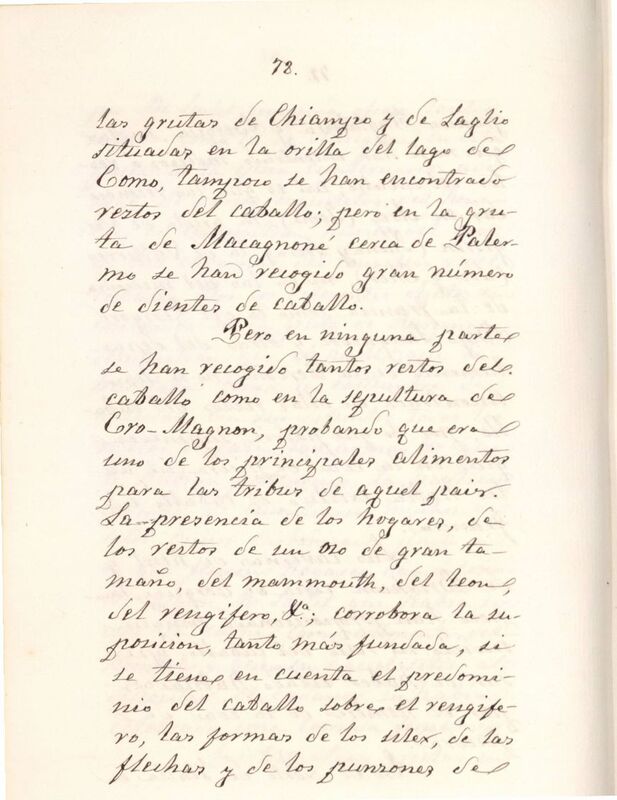 78.
las grutas de Chiampo y de Laglio
situadas en la orilla del lago de
Como, tampoco se han encontrado
restos del caballo; pero en la gru-
ta de Macagnoné cerca de Paler-
mo se han recogido gran número
de dientes de caballo.
Pero en ninguna parte
se han recogido tantos restos del
caballo como en la sepultura de
Cro-Magnon, probando que era
uno de los principales alimentos
para las tribus de aquel pais.
La presencia de los hogares, de
los restos de un oso de gran ta-
maño, del mammouth, del leon,
del rengifero, &a.; corrobora la su-
posicion, tanto más fundada, si
se tiene en cuenta el predomi-
nio del caballo sobre el rengife-
ro, las formas de los silex, de las
flechas y de los punzones de